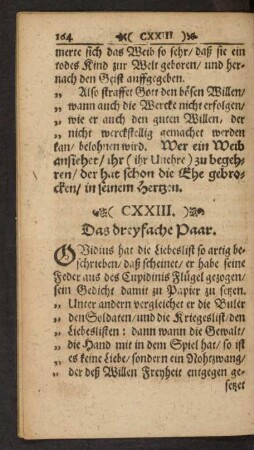 164 ❧( CXXIII )❧
merte sich das Weib so sehr/ daß sie ein
todes Kind zur Welt geboren/ und her-
nach den Geist auffgegeben.
„ Also straffet Gott den bösen Willen/
„ wann auch die Wercke nicht erfolgen/
„ wie er auch den guten Willen, der
„ nicht werckstellig gemachet werden
kan/ belohnen wird. Wer ein Weib
ansiehet/ ihr ( ihr Unehre ) zu begeh-
ren/ der hat schon die Ehe gebro-
cken/ in seinem Hertzen.
❧( CXXIII. )❧
Das dreyfache Paar.
OVidius hat die Liebeslist so artig be-
schrieben/ daß scheinet/ er habe seine
Feder aus des Cupidinis Flügel gezogen/
sein Gedicht damit zu Papier zu setzen.
„ Unter andern vergleichet er die Buler
„ den Soldaten/ und die Kriegeslist/ den
„ Liebeslisten: dann wann die Gewalt/
„ die Hand mit in dem Spiel hat/ so ist
„ es keine Liebe/ sondern ein Nohtzwang/
„ der deß Willen Freyheit entgegen ge-
setzet